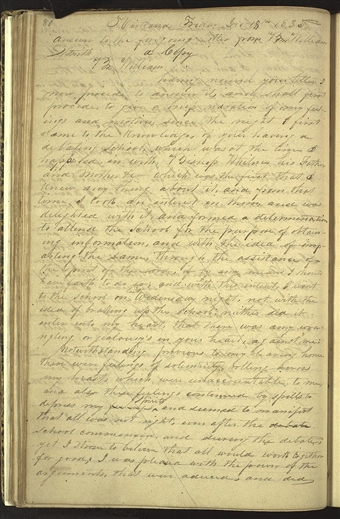 answer to the foregoing Letter from Br William
Smith a Copy
Br William
having received your letter I
now provide to answer it, and shall first
provide to give a brief narration of my feel
ings and motives since the night I first
came to the knowledge of your having a
debating School, which was at the time I
happened in with
and Mother &c which was the first that I
knew any thing about it, and from that
time I took an interest in them and was
delighted with it and formed a determination
to attend the School for the purpose of obtain
ing information, and with the idea of imp
arting the same through the assistance of
the spirit of the Lord, if by any means I should
have faith to do so; and with this intent, I went
to the school on Wednesday night, not with the
idea of braking up the School, neither did it
enter into my heart, that there was any wra
ngling or jealousy's in your heart, against me
Notwithstanding previous to my leaving home
there were feelings of solemnity rolling across
my breast, which were unaccountable to me
and also these feelings continued by spells to
depress my spirits and seemed to manifest
that all was not right, even after the debate
School commenced, and during the debate,
yet I strove to believe that all would work together
for good; I was pleased with the power of the
arguments, that were aduced, and did